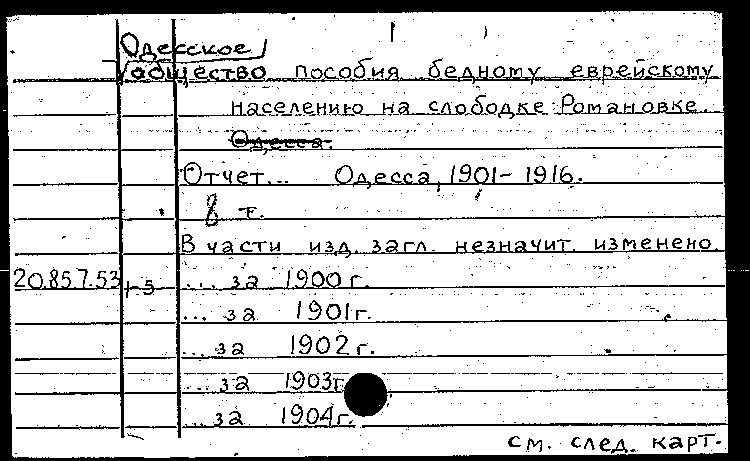 Одесское
общество пособия бедному еврейскому
населению на слободке Романовке.
Одесса.
Отчет... Одесса, 1901-1916.
8 т.
В части изд. загл. незначит. изменено.
20.857.53 1-5 ... за 1900 г.
... за 1901 г.
... за 1902 г.
... за 1903 г.
... за 1904 г.
см. след. карт.